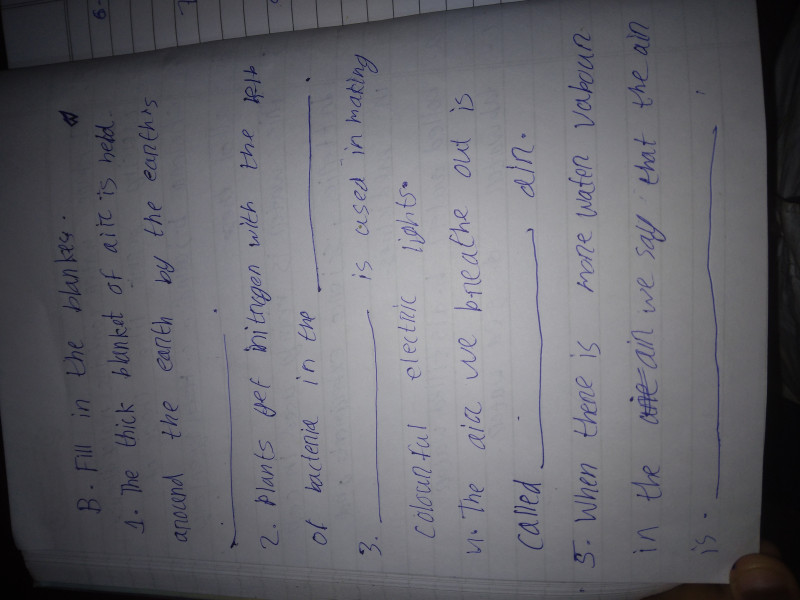 B. Fill in the blankes.
1. The thick blanket of airc is held
around the earth by the earth's
2. Plants get initrogen with the help
of bacteria in the
3. is used in making
colourful electric lights.
4. The airc we breathe out is
called air.
5. When there is more water vabour
in the air we say that the air
is.
6.